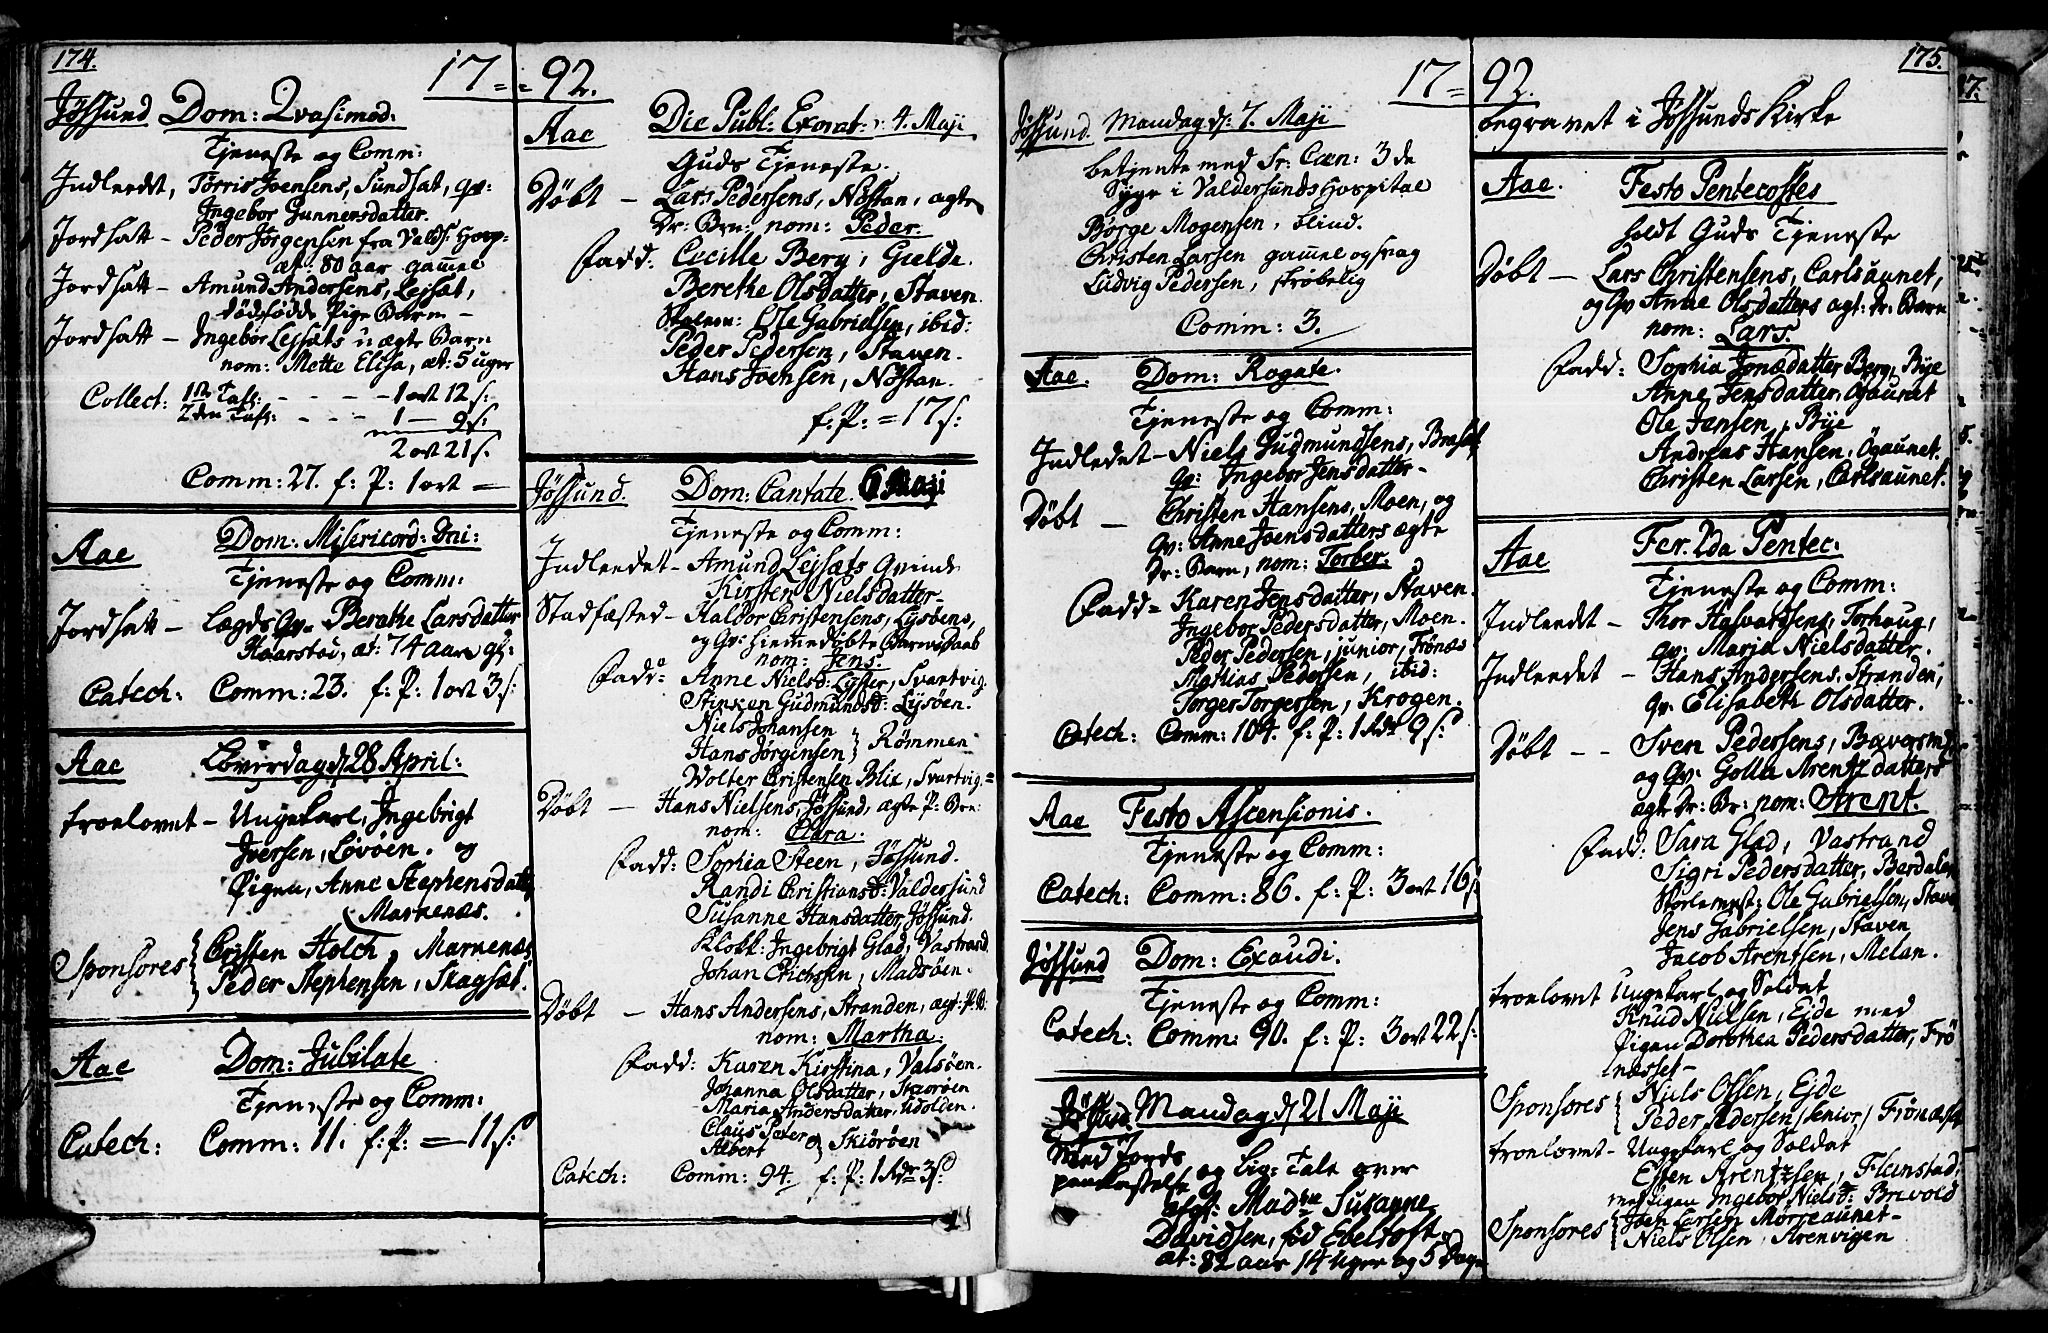 174.
17 = = 92.
Jøssund Dom: Qvasimod:
Tjeneste og Comm:
Indleedt, Tørris Joensens, Sundsæt, qv:
Ingebor Gunnersdatter.
Jordsatt - Peder Jørgensen fra Valds: Hosp:
æt: 80 aar gamel
Jordsatt - Amund Andersens, Lejsæt,
dødfødde Pige Barn -
Jordsatt - Ingebor Lejsæts uægte Barn
nom: Mette Elisa, æt: 5 uger
Collect: 1ste Tafl: - - - - 1 ort 12 s:
2den Tafl: - - - 1 - 9 s:
2 ort 21 s.
Comm: 27. f: P: 1 ort =
Aae Dom: Misericord: Dni:
Tjeneste og Comm:
Jordsatt - Lægds Qv. Berethe Larsdatter
Haarstøi, æt: 74 aar gl:
Catech: Comm: 23. f: P: 1 ort 3 s:
Aae Løverdag d. 28 April:
troelovet - Ungekarl, Ingebrigt
Iversen, Løvøen. og
Pigen, Anne Stephensdatter
Marnenæs.
Sponsores Cristen Holck, Marnenæs
Peder Stephensen, Skagsæt.
Aae Dom: Jubilate
Tjeneste og Comm:
Catech: Comm: 11. f: P: = 11 s:
Aae Die Publ: Exorat: 4. Maji
Guds Tjeneste.
Døbt - Lars Pedersens, Nøstan, agte
Dr: Brn: nom: Peder.
Fadd: Cecille Berg, Gielde.
Berethe Olsdatter, Staven.
Skolem: Ole Gabrielsen, ibid:
Peder Pedersen, Staven.
Hans Joensen, Nøstan.
f. P: = 17 s:
Jøssund. Dom: Cantate. 6 Maji
Tjeneste og Comm:
Indleedet - Amund Lejsæts Qvinde
Kirsten Nielsdatter -
Stadfæsted - Haldor Christensens, Lysøens,
og Qv: hiemedøbte Barns Daab
nom: Jens.
Fadd: Anne Nielsd: Lysser, Svartvig.
Stinken Gudmundsd: Lysøen.
Niels Johansen
Hans Jørgensen } Rømmen
Wolter Christensen Blix, Svartvig =
Døbt - Hans Nielsens, Jøssund, ægte P: Brn:
nom: Clara.
Fadd: Sophia Steen, Jøssund.
Randi Christiansd: Valdersund
Susanne Hansdatter, Jøssund.
Klokk: Ingebrigt Glad, Vastrand
Johan Erichsen, Madsøen.
Døbt - Hans Andersens, Stranden, ægt: P: B:
nom: Martha.
Fadd: Karen Kirstina, Valsøen.
Johanna Olsdatter, Skiørøen
Maria Andersdatter, Udolden.
Claus Peter
Albert } Skiørøen
Catech: Comm: 94. f: P: 1 Rdr 3 s:
175.
17 = 92.
Jøssund. Mandag d: 7. Maji
betjente med Sr: Cæn: 3 de
Syge i Valdersunds Hospital
Børge Mogensen, blind.
Christen Larsen gamel og svag
Ludvig Pedersen, skrøbelig
Comm: 3.
Aae. Dom: Rogate.
Tjeneste og Comm:
Indledet - Niels Gudmundsens, Bræsæt
qv: Ingebor Jensdatter -
Døbt - Christen Hansens, Moen, og
Qv: Anne Joensdatters ægte
Dr: Barn, nom: Torber.
Fadd = Karen Jensdatter, Staven.
Ingebor Pedersdatter, Moen.
Peder Pedersen, junior, Frønæs
Mathias Pedersen, ibid:
Torges Torgersen, Krogen.
Catech: Comm: 104. f: P: 1 Rdr 9 s:
Aae Festo Ascensionis.
Tjeneste og Comm:
Catech: Comm: 86. f: P: 3 ort 16 s.
Jøssund Dom: Exaudi.
Tjeneste og Comm:
Catech: Comm: 90. f: P: 3 ort 22 s:
Jøssund Mandag d 21 Maji
med Jords
paakastelse og Lig: Tale over
Madme Susanne
Davidsen, fød Ebeltoft
æt: 82 aar 14 Uger og 5 Dage
begravet i Jøssunds Kirke
Aae. Festo Pentecostes
holdt Guds Tjeneste
Døbt - Lars Christensens, Carlsaunet,
og Qv Anne Olsdatters agt: Dr: Barn
nom: Lars.
Fadd: Sophia Jonædatter Berg, Bye
Anne Jensdatter, Ogaunet
Ole Jansen, Bye
Andreas Hansen, Ogaunet.
Christen Larsen, Carlsaunet.
Aae Fer. 2da Pentec:
Tjeneste og Comm:
Indleedet - Thor Halvordsens, Torhaug,
qv: Maria Nielsdatter.
Indleedet - Hans Andersens, Stranden,
qv. Elisabeth Olsdatter.
Døbt - - Sven Pedersens,
og Qv: Golla Arentzdatters
ægte Dr: Br: nom: Arent.
Fadd: Sara Glad, Vastrand
Sigri Pedersdatter, Berdalen
Skolemest: Ole Gabrielsen, Staven
Jens Gabrielsen, Staven
Jacob Arentsen, Melan.
troelovet Ungekarl og Soldat
Knud Nielsen, Eide med
Pigen Dorothea Pedersdatter, Frö
næsset -
Sponsores Niels Olsen, Eide
Peder Pedersen /senior/ Frønæsset
troelovet - Ungekarl og Soldat
Esten Arentzsen, Flenstad,
med Pigen Ingebor Nielsd: Brevold
Sponsores Joen Larsen Mørreaunet -
Niels Olsen Arenvigen